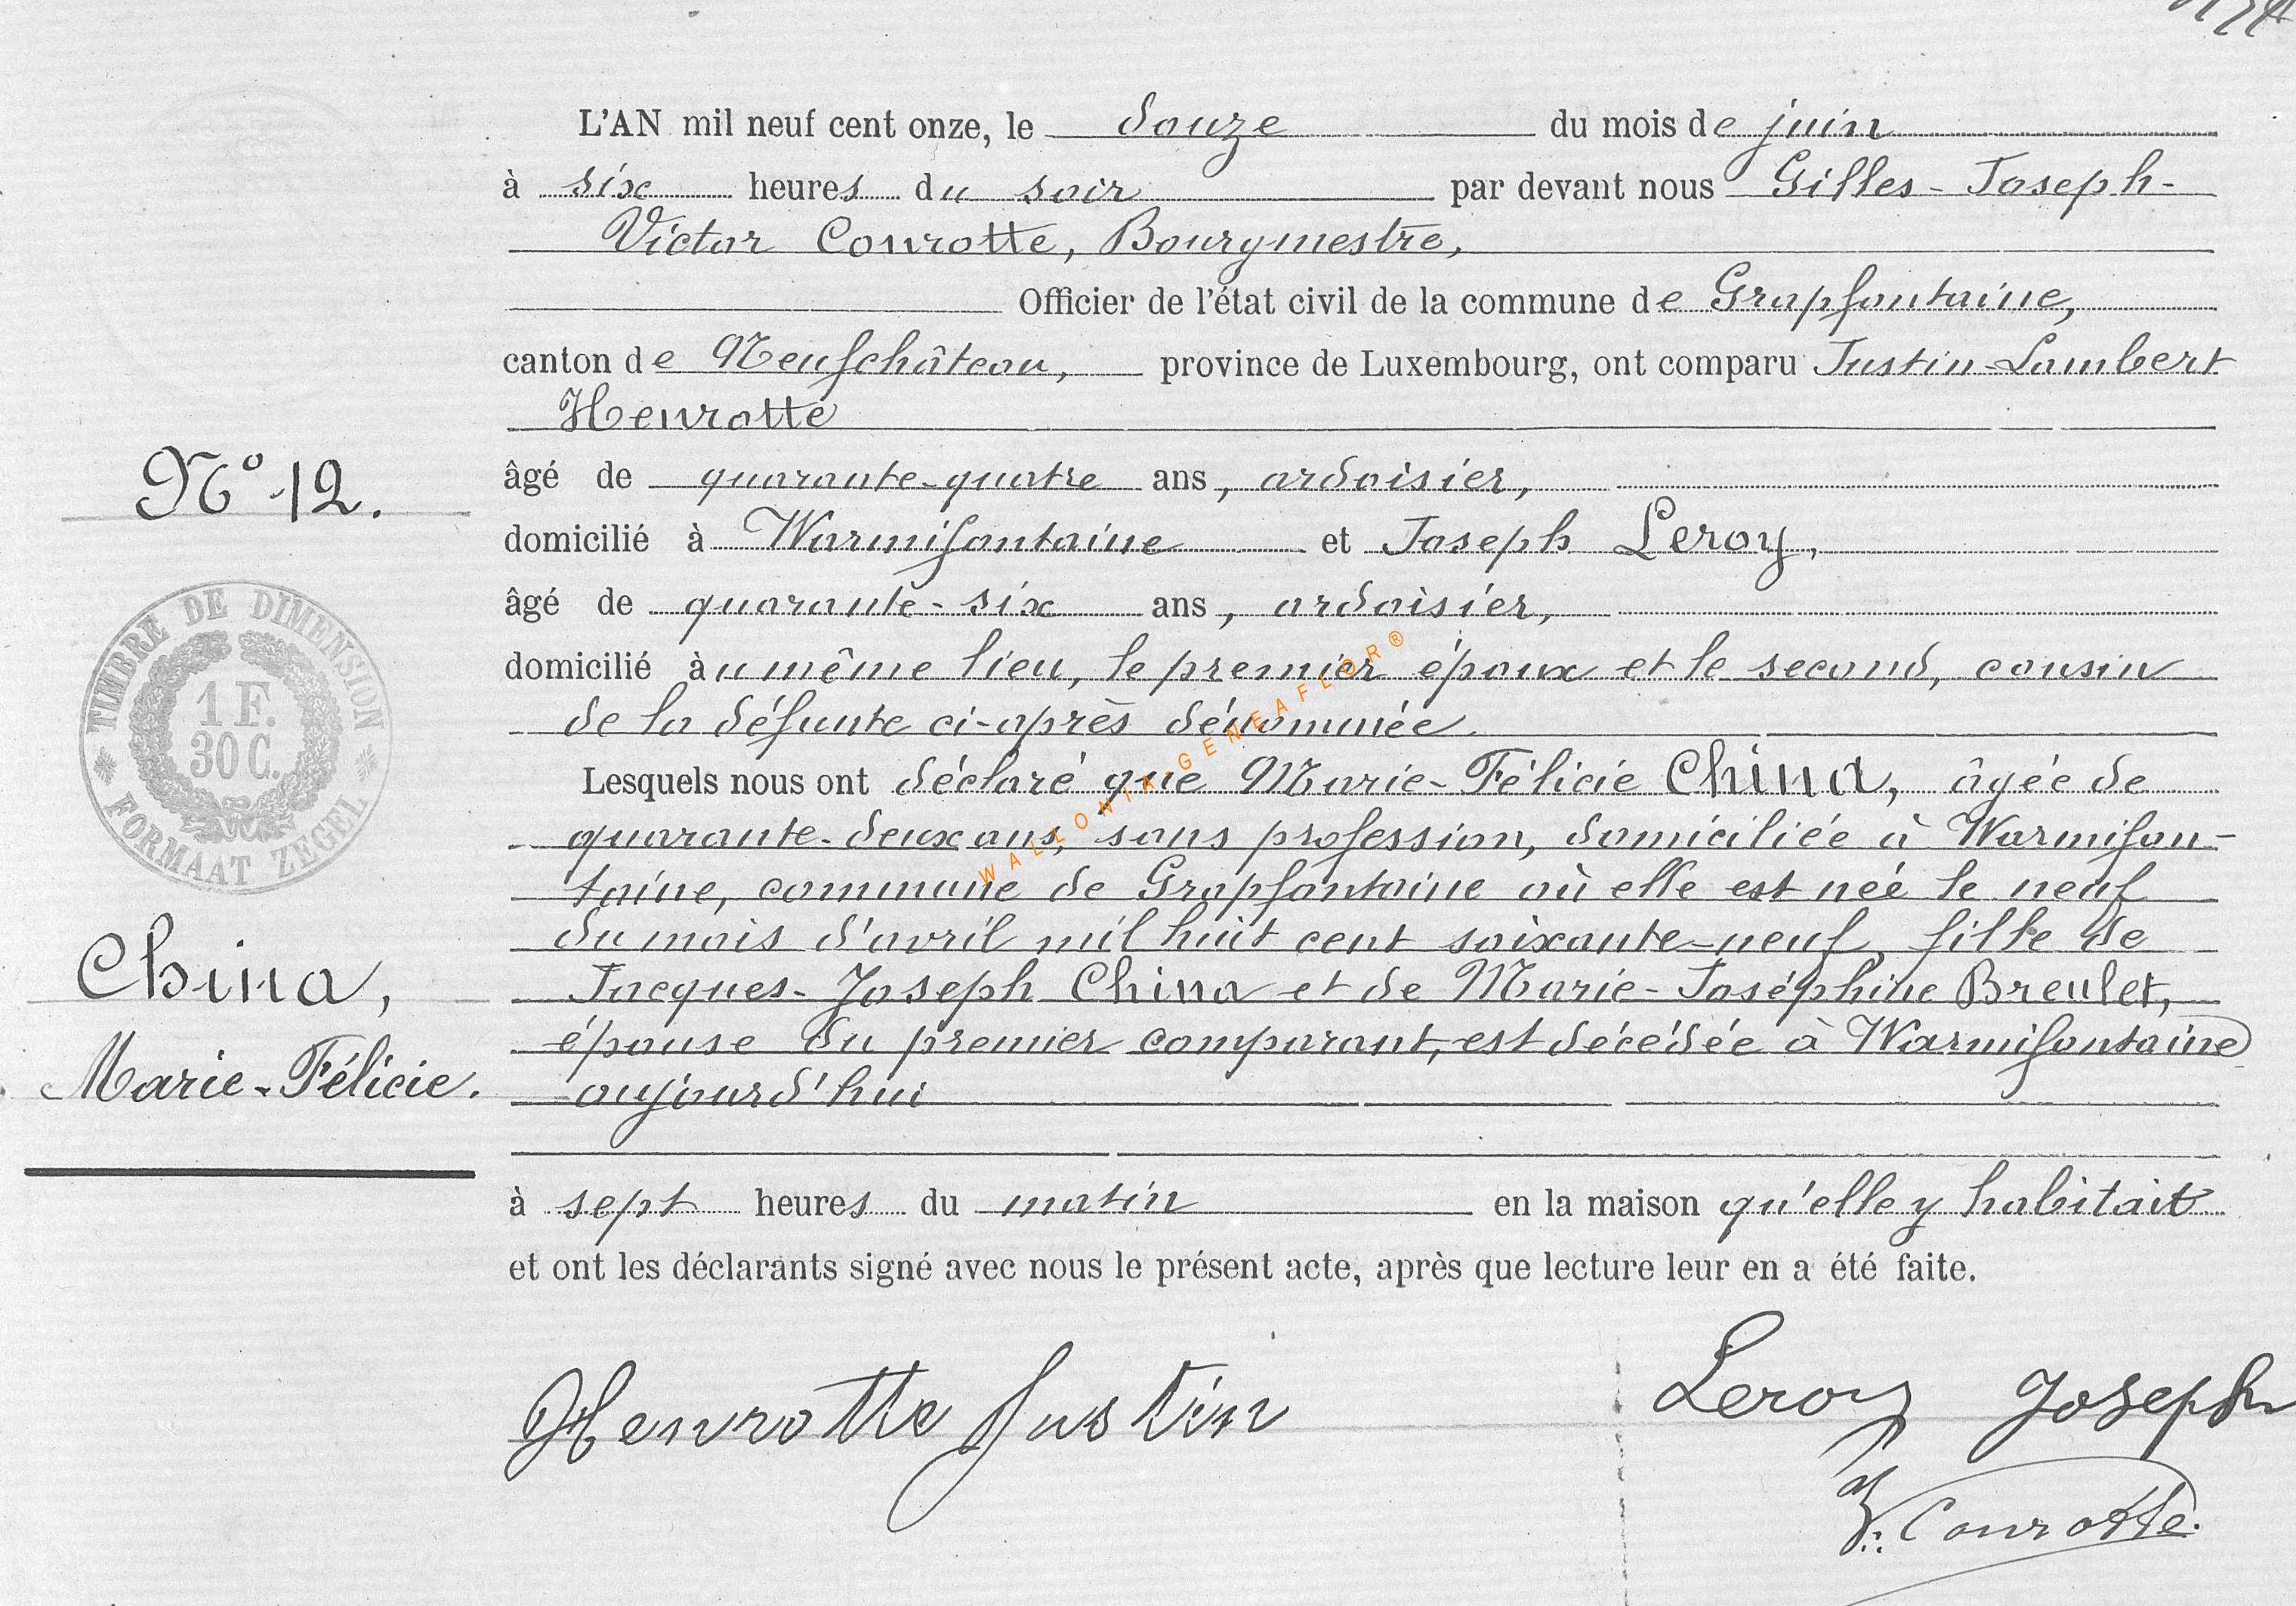 L'AN mil neuf cent onze, le douze du mois de juin
à six heures du soir par devant nous Gilles-Joseph-
Victor Conrotte, Bourgmestre,
Officier de l'état civil de la commune de Grapfontaine,
canton de Neufchâteau, province de Luxembourg, ont comparu Justin-Lambert
Henrotte
âgé de quarante-quatre ans, ardoisier,
N° 12.
domicilié à Warmifontaine et Joseph Leroy,
âgé de quarante-six ans, ardoisier,
domicilié au même lieu, le premier époux et le second, cousin
de la défunte ci-après dénommée.
TIMBRE DE DIMENSION
1 F.
30 C.
FORMAAT ZEGEL
WALLONIA-GENEAFLOR®
Lesquels nous ont déclaré que Marie-Félicie China, âgée de
quarante-deux ans, sans profession, domiciliée à Warmifon-
taine, commune de Grapfontaine où elle est née le neuf
du mois d'avril mil huit cent soixante-neuf, fille de
China,
Marie-Félicie.
Jacques-Joseph China et de Marie-Joséphine Breulet,
épouse du premier comparant, est décédée à Warmifontaine
aujourd'hui
à sept heures du matin en la maison qu'elle y habitait
et ont les déclarants signé avec nous le présent acte, après que lecture leur en a été faite.
Henrotte Justin
Leroy Joseph
V. Conrotte.